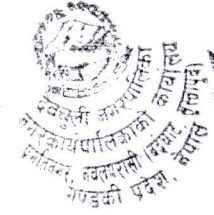 देवचुली नगरपालिका
नगर कार्यपालिकाको कार्यालय
नवलपरासी (बर्दघाट सुस्तापूर्व)
गण्डकी प्रदेश, नेपाल